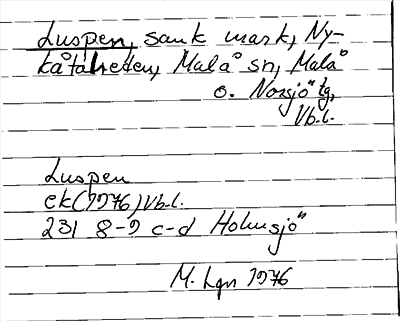 Luspen, sank mark, Ny-
kåtaheden, Malå sn, Malå
o. Norsjö tg,
Vb.l.
Luspen
ek (1976) Vb.l.
231 8-9 c-d Holmsjö
M. Lgn 1976